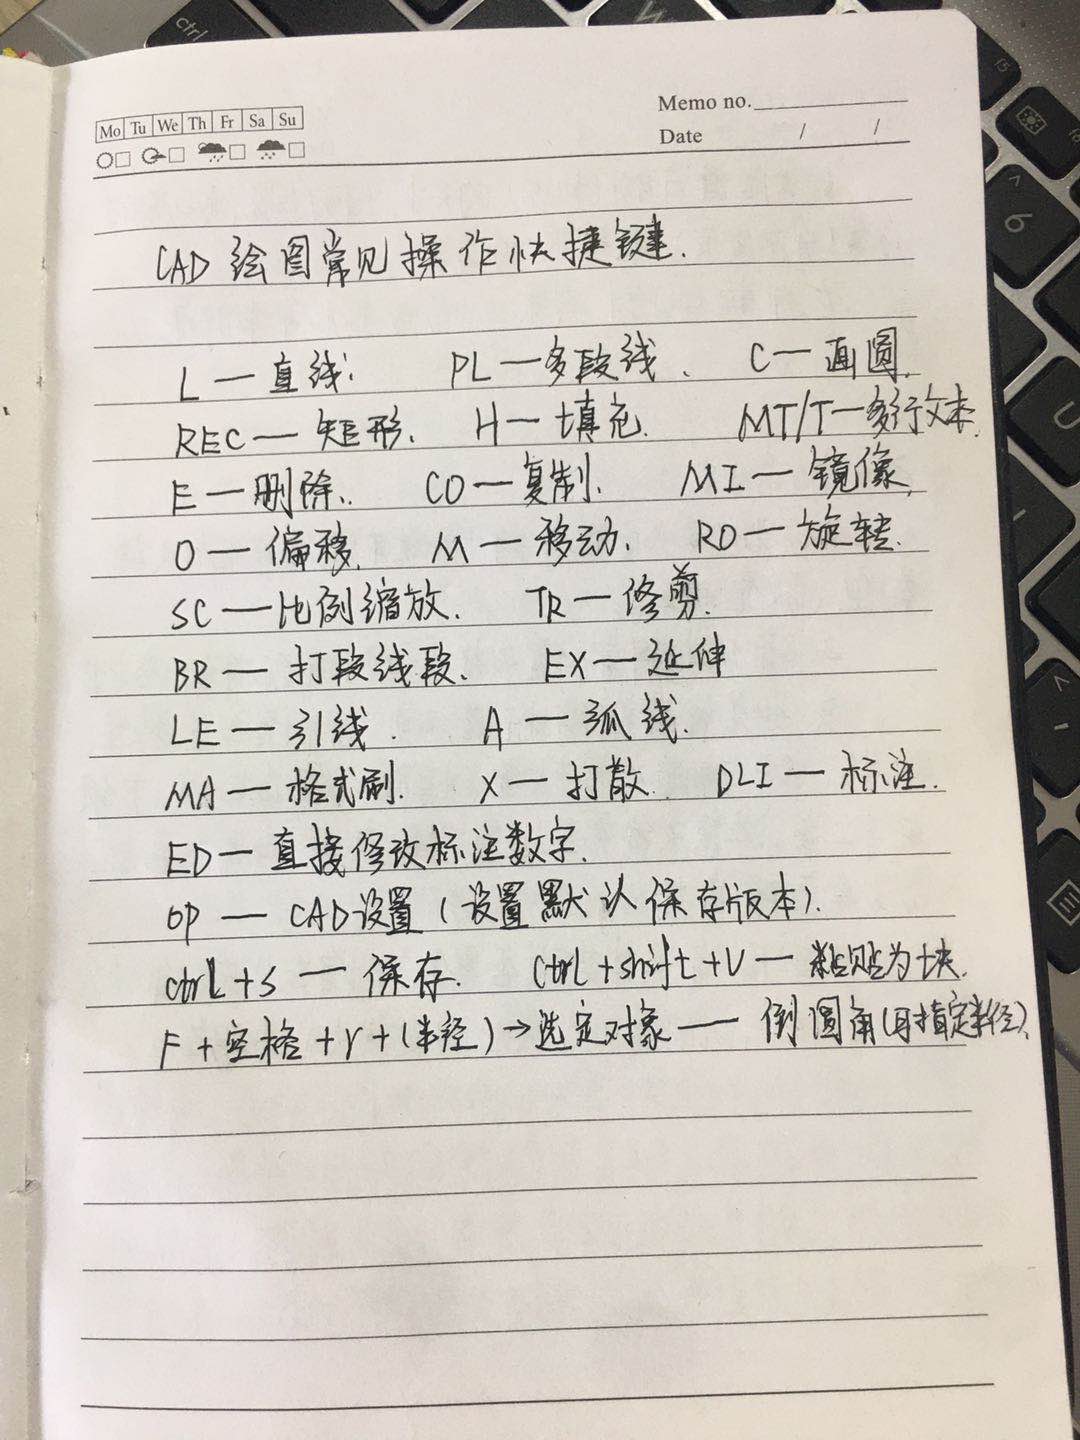 Mo Tu We Th Fr Sa Su
Memo no.
Date / /
CAD 绘图常见操作快捷键.
L — 直线. PL — 多段线. C — 画圆.
REC — 矩形. H — 填充. MT/T — 多行文本.
E — 删除. CO — 复制. MI — 镜像.
O — 偏移. M — 移动. RO — 旋转.
SC — 比例缩放. TR — 修剪.
BR — 打段线段. EX — 延伸
LE — 引线. A — 弧线.
MA — 格式刷. X — 打散. DLI — 标注.
ED — 直接修改标注数字.
OP — CAD设置（设置默认保存版本）.
ctrl+s — 保存. ctrl+shift+V — 粘贴为块.
F+空格+r+(半径)→选定对象 — 倒圆角(用指定半径).
ctrl
W
f5
6
U